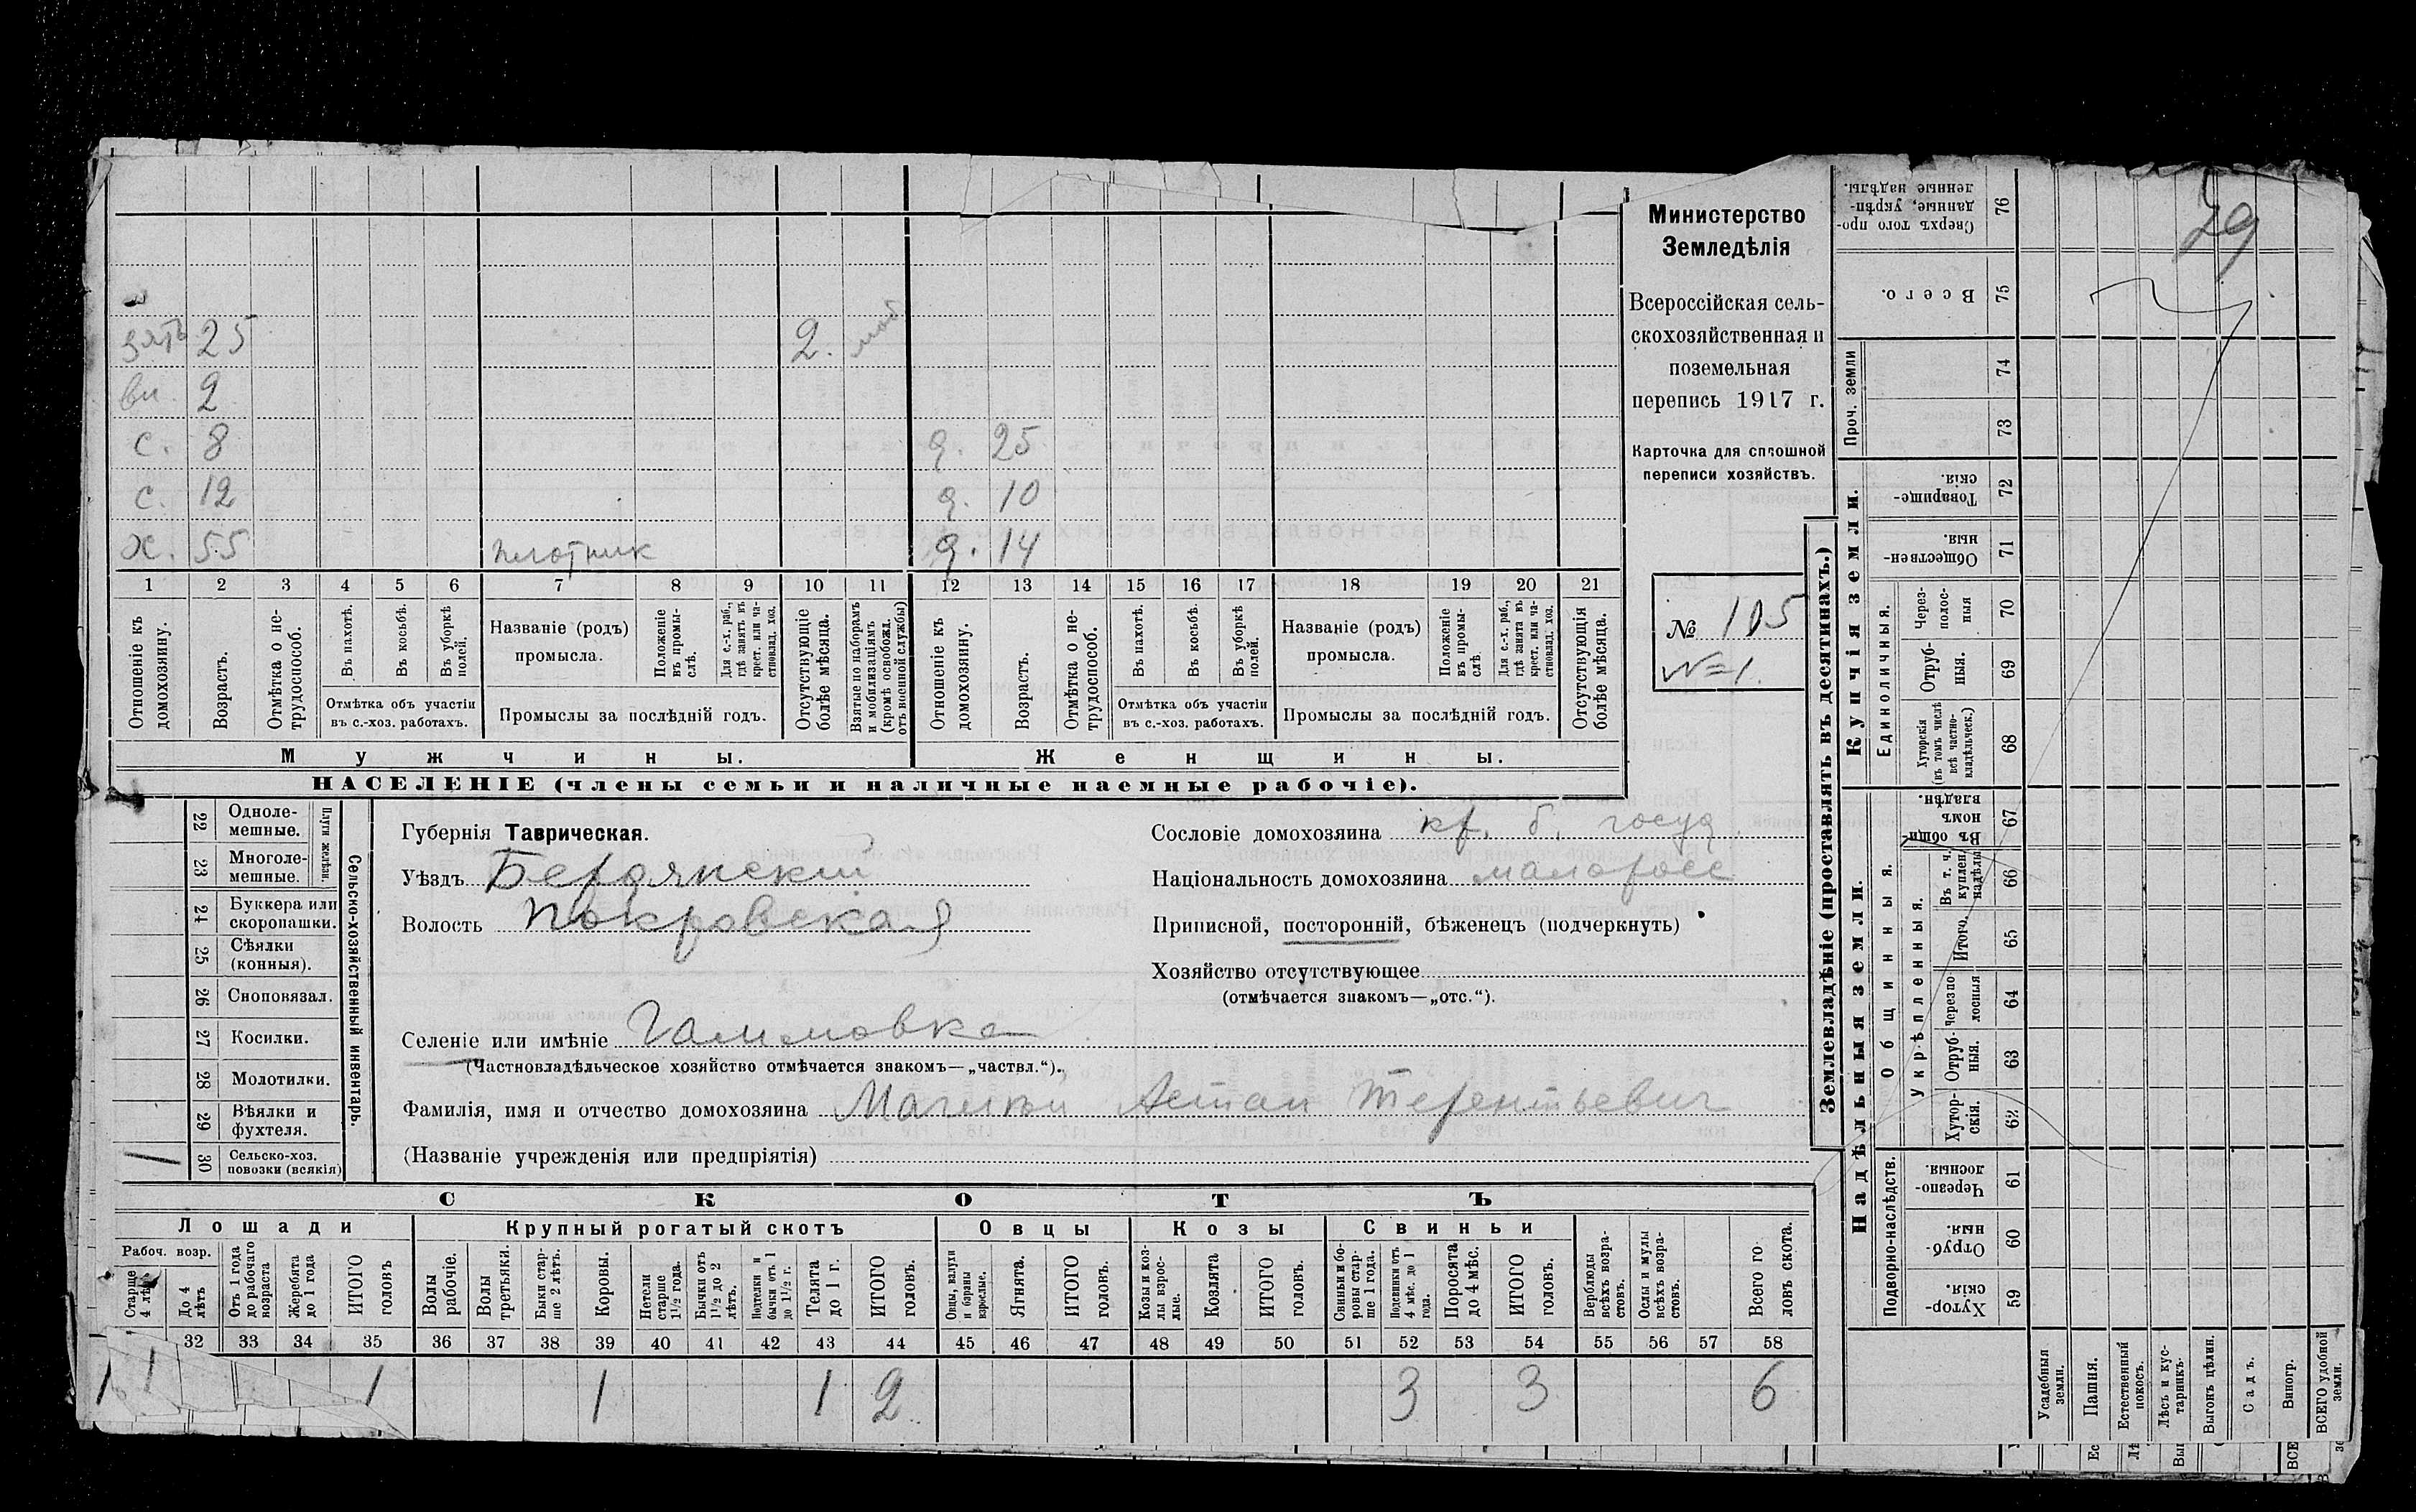 зять 25 2. моб
вн. 2
с. 8 д. 25
с. 12 д. 10
х. 55 плотник д. 14
1 2 3 4 5 6 7 8 9 10 11 12 13 14 15 16 17 18 19 20 21
Отношеніе къ домохозяину.
Возрастъ.
Отмѣтка о не-
трудоспособ.
Въ пахотѣ.
Въ косьбѣ.
Въ уборкѣ полей.
Отмѣтка объ участіи
въ с.-хоз. работахъ.
Названіе (родъ)
промысла.
Положеніе въ промы-
слѣ.
Для с.-х. раб.,
гдѣ занятъ въ
крест. или ча-
стновлад. хоз.
Промыслы за послѣдній годъ.
Отсутствующіе
болѣе мѣсяца.
Взятые по наборамъ
и мобилизаціямъ
(кромѣ освобожд.
отъ военной службы)
Отношеніе къ
домохозяину.
Возрастъ.
Отмѣтка о не-
трудоспособ.
Въ пахотѣ.
Въ косьбѣ.
Въ уборкѣ
полей.
Отмѣтка объ участіи
въ с.-хоз. работахъ.
Названіе (родъ)
промысла.
Положеніе
въ промы-
слѣ.
Для с.-х. раб.,
гдѣ занята въ
крест. или ча-
стновлад. хоз.
Промыслы за послѣдній годъ.
Отсутствующія
болѣе мѣсяца.
Мужчины.
Женщины.
НАСЕЛЕНІЕ (члены семьи и наличные наемные рабочіе).
Министерство
Земледѣлія
Всероссійская сель-
скохозяйственная и
поземельная
перепись 1917 г.
Карточка для сплошной
переписи хозяйствъ.
№ 105
№ 1.
22 Одноле-
мешные.
23 Многоле-
мешные.
Плуги желѣзн.
24 Буккера или
скоропашки.
25 Сѣялки
(конныя).
26 Сноповязал.
27 Косилки.
28 Молотилки.
29 Вѣялки и
фухтеля.
1 30 Сельско-хоз.
повозки (всякія)
Сельско-хозяйственный инвентарь.
Губернія Таврическая.
Уѣздъ Бердянскій
Волость Покровская
Селеніе или имѣніе
(Частновладѣльческое хозяйство отмѣчается знакомъ—„частвл.“).
Фамилія, имя и отчество домохозяина Терентьевич
(Названіе учрежденія или предпріятія)
Сословіе домохозяина кр. б. госуд.
Національность домохозяина малоросс
Приписной, посторонній, бѣженецъ (подчеркнуть)
Хозяйство отсутствующее
(отмѣчается знакомъ—„отс.“).
СКОТЪ
Лошади Крупный рогатый скотъ Овцы Козы Свиньи
Рабоч. возр.
Старше
4 лѣтъ
До 4
лѣтъ
Отъ 1 года
до рабочаго
возраста
Жеребята
до 1 года
ИТОГО
головъ
Волы
рабочіе.
Волы
третьяки.
Быки стар-
ше 2 лѣтъ.
Коровы.
Нетели
старше
1½ года.
Бычки отъ
1½ до 2
лѣтъ.
Подтелки и
бычки отъ 1
до 1½ г.
Телята
до 1 г.
ИТОГО
головъ.
Овцы, валухи
и бараны
взрослые.
Ягнята.
ИТОГО
головъ.
Козы и коз-
лы взрос-
лые.
Козлята
ИТОГО
головъ.
Свиньи и бо-
ровы стар-
ше 1 года.
Подсвинки отъ
4 мѣс. до 1
года.
Поросята
до 4 мѣс.
ИТОГО
головъ.
Верблюды
всѣхъ возра-
стовъ.
Ослы и мулы
всѣхъ возра-
стовъ.
Всего го
ловъ скота.
32 33 34 35 36 37 38 39 40 41 42 43 44 45 46 47 48 49 50 51 52 53 54 55 56 57 58
1 1 1 1 1 2 3 3 6
Землевладѣніе (проставлять въ десятинахъ.)
29
Сверхъ того про-
данные, укрѣп-
ленные надѣлы. 76
Всего. 75
Проч. земли 74
73
Купчія земли.
Товарище-
скія. 72
Обществен-
ныя. 71
Единоличныя.
Через-
полос-
ныя 70
Отруб-
ныя. 69
Хуторскія
(въ томъ числѣ
всѣ частно-
владѣльческ.) 68
Надѣльныя земли.
Общинныя.
Въ общин-
номъ
владѣн. 67
Укрѣпленныя.
Въ т. ч.
куплен.
надѣлы 66
Итого. 65
Черезпо
лосныя 64
Отруб-
ныя. 63
Хутор-
скія. 62
Подворно-наслѣдств.
Черезпо-
лосныя. 61
Отруб-
ныя 60
Хутор-
скія 59
Усадебныя
земли.
Пашня.
Естественный
покосъ.
Лѣсъ и кус-
тарникъ.
Выгонъ цѣлин.
Садъ.
Виногр.
ВСЕГО удобной
земли.